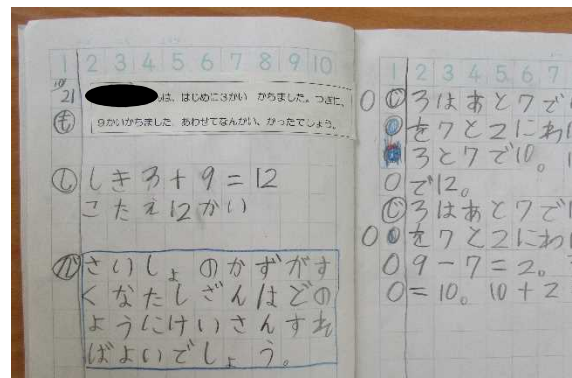 1 2 3 4 5 6 7 8 9 10
10
21
は、はじめに3かい かちました。つぎに、
も
9かいかちました。あわせてなんかい、かったでしょう。
し しき 3+9=12
こたえ12かい
が さいしょのかずがす
くなたしざんはどの
ようにけいさんすれ
ばよいでしょう。
1 2 3 4 5 6 7
3はあと7で
を7と2にわ
3と7で10。
で12。
3はあと7で
を7と2にわ
9-7=2。
=10。10+2